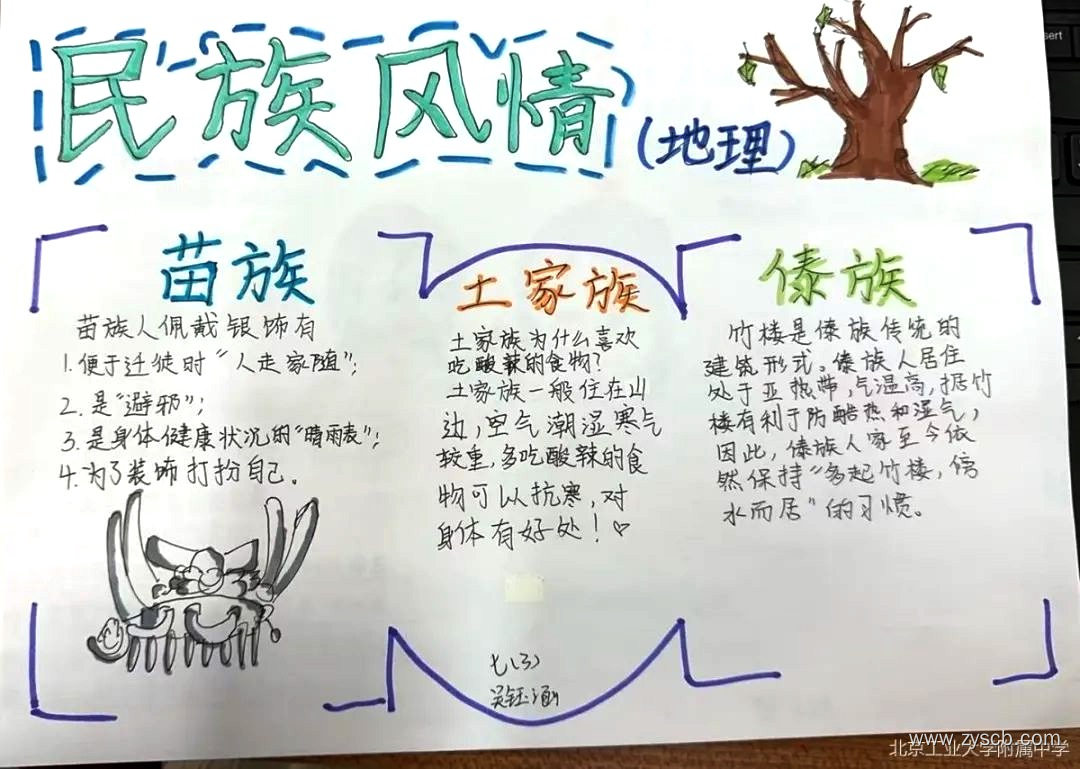 民族风情
(地理)
苗族
苗族人佩戴银饰有
1.便于迁徙时"人走家随";
2.是"避邪";
3.是身体健康状况的"晴雨表";
4.为了装饰打扮自己。
土家族
土家族为什么喜欢
吃酸辣的食物?
土家族一般住在山
边,空气潮湿寒气
较重,多吃酸辣的食
物可以抗寒,对
身体有好处!♡
七(3)
吴钰涵
傣族
竹楼是傣族传统的
建筑形式。傣族人居住
处于亚热带,气温高,据竹
楼有利于防酷热和湿气,
因此,傣族人家至今依
然保持"多起竹楼,傍
水而居"的习惯。
www.zyscb.com
北京工业大学附属中学
sert